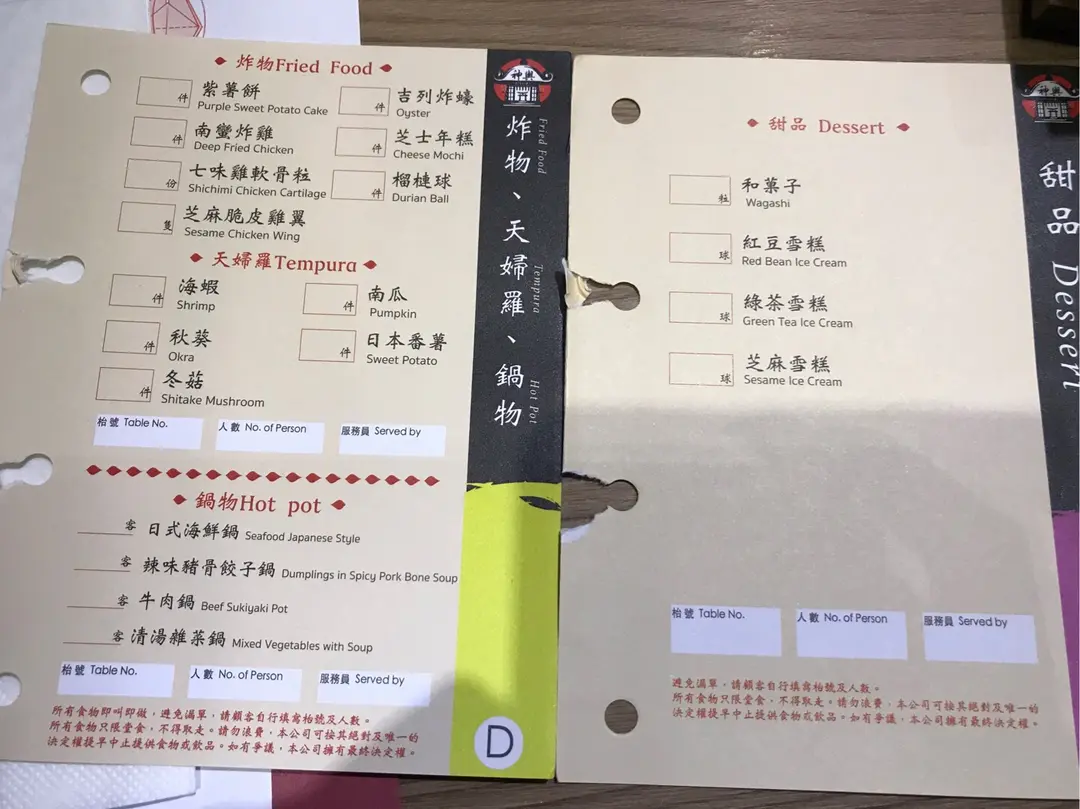 炸物Fried Food
件 紫薯餅 Purple Sweet Potato Cake
件 吉列炸蠔 Oyster
件 南蠻炸雞 Deep Fried Chicken
件 芝士年糕 Cheese Mochi
份 七味雞軟骨粒 Shichimi Chicken Cartilage
件 榴槤球 Durian Ball
隻 芝麻脆皮雞翼 Sesame Chicken Wing
天婦羅Tempura
件 海蝦 Shrimp
件 南瓜 Pumpkin
件 秋葵 Okra
件 日本番薯 Sweet Potato
件 冬菇 Shitake Mushroom
枱號 Table No.
人數 No. of Person
服務員 Served by
鍋物Hot pot
客 日式海鮮鍋 Seafood Japanese Style
客 辣味豬骨餃子鍋 Dumplings in Spicy Pork Bone Soup
客 牛肉鍋 Beef Sukiyaki Pot
客 清湯雜菜鍋 Mixed Vegetables with Soup
枱號 Table No.
人數 No. of Person
服務員 Served by
所有食物即叫即做，避免漏單，請顧客自行填寫枱號及人數。
所有食物只限堂食，不得取走。請勿浪費，本公司可按其絕對及唯一的
決定權提早中止提供食物或飲品。如有爭議，本公司擁有最終決定權。
神興
炸物、天婦羅、鍋物
Fried Food
Tempura
Hot Pot
D
甜品 Dessert
粒 和菓子 Wagashi
球 紅豆雪糕 Red Bean Ice Cream
球 綠茶雪糕 Green Tea Ice Cream
球 芝麻雪糕 Sesame Ice Cream
枱號 Table No.
人數 No. of Person
服務員 Served by
避免漏單，請顧客自行填寫枱號及人數。
所有食物只限堂食，不得取走。請勿浪費，本公司可按其絕對及唯一的
決定權提早中止提供食物或飲品。如有爭議，本公司擁有最終決定權。
神興
甜品 Dessert